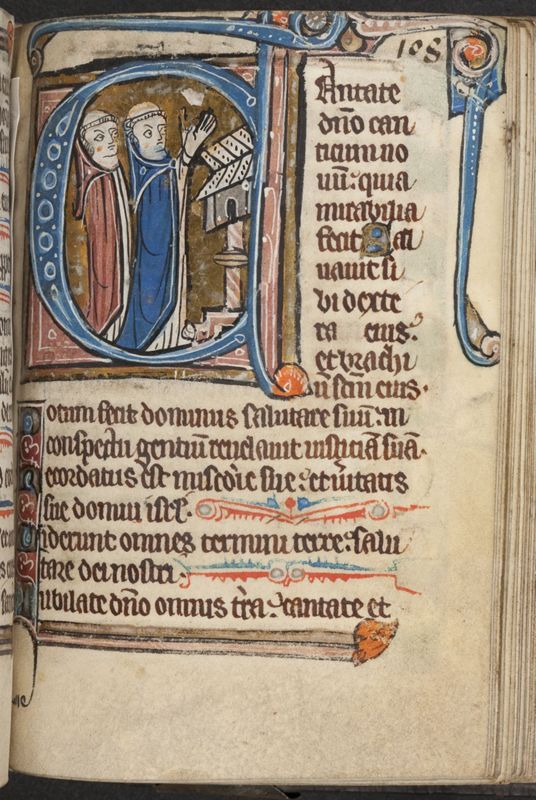 108
Antate
dño can
ticum no
uũ: quia
mirabilia
fecit Sal
uauit si
bi dexte
ra eius:
et brachi
ũ scm̃ eius.
otum fecit dominus salutare suũ: in
conspectu gentiũ reuelauit iusticiã suã.
ecordatus est misc̃ie sue: et ueritatis
sue domui isrł.
iderunt omnes termini terre: salu
tare dei nostri.
ubilate dño omnis tr̃a: cantate et